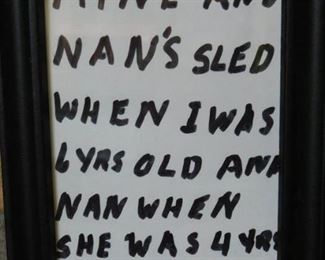 MINE AND
NAN'S SLED
WHEN I WAS
6 YRS OLD AND
NAN WHEN
SHE WAS 4 YRS